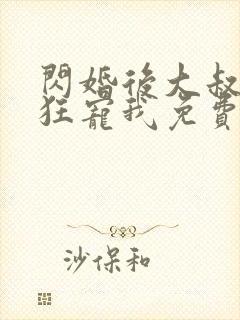 閃婚後大叔
狂寵我免費
沙保和